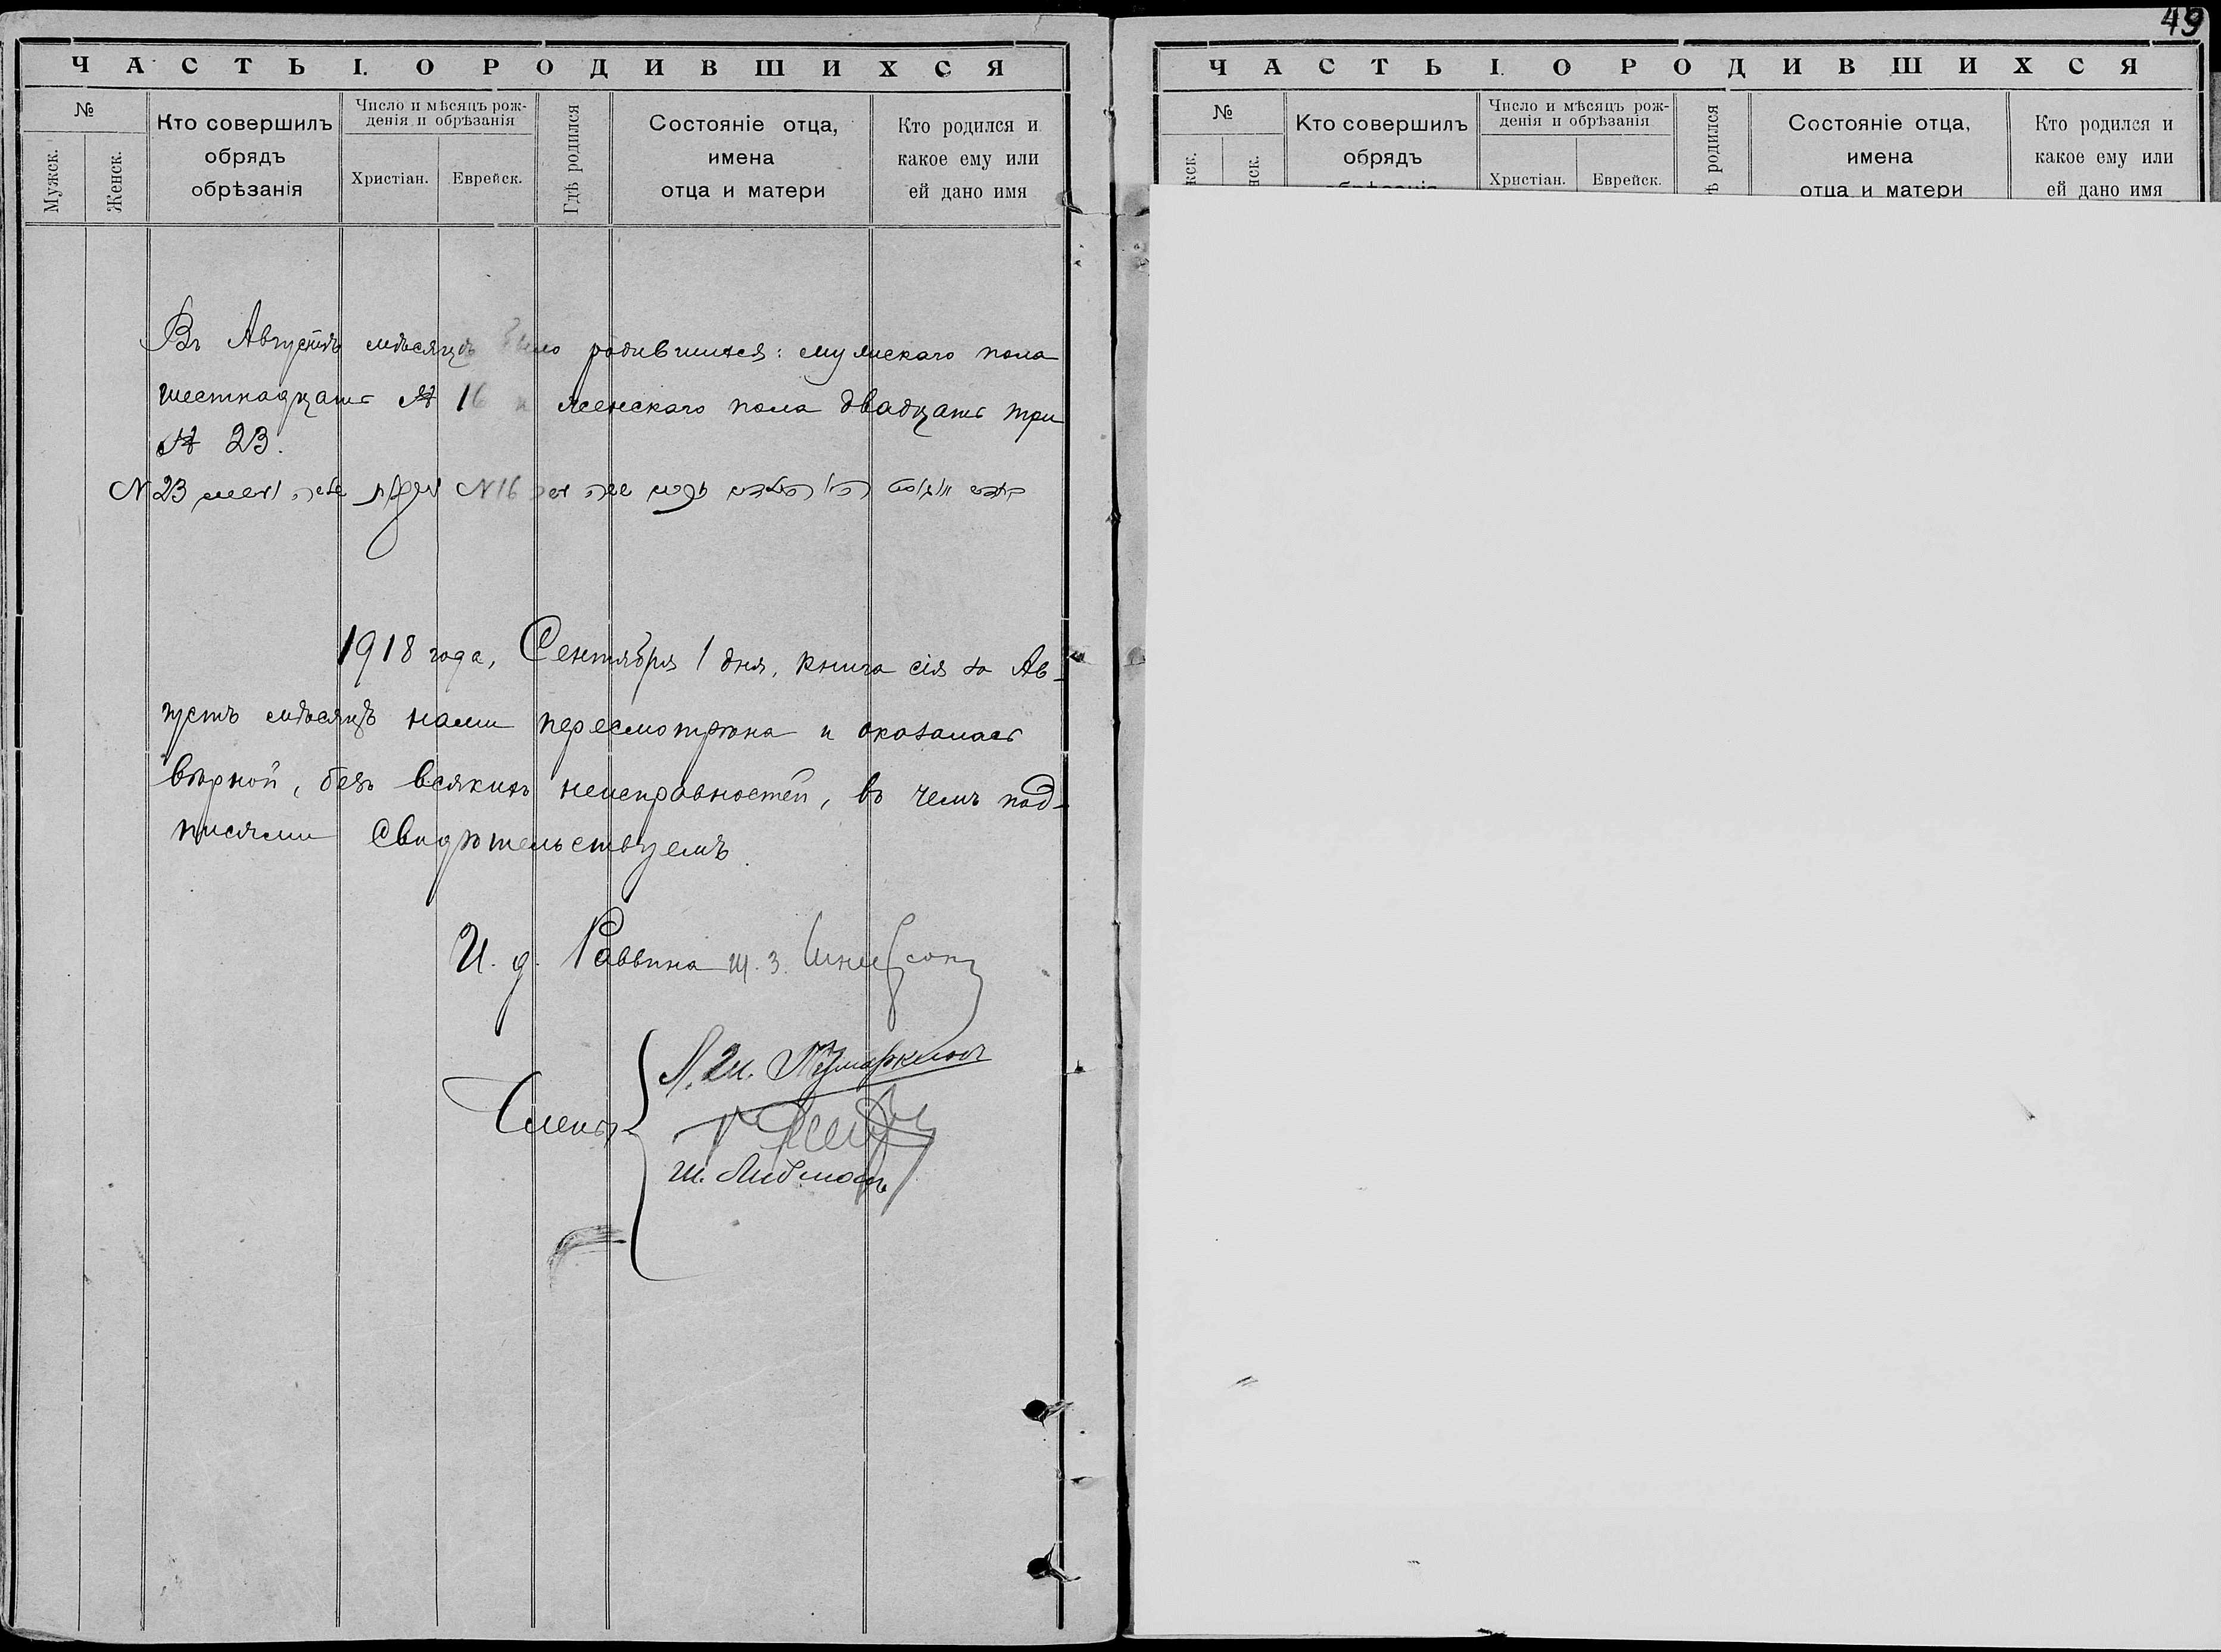 49
ЧАСТЬ I. О РОДИВШИХСЯ
№
Мужск.
Женск.
Кто совершилъ
обрядъ
обрѣзанія
Число и мѣсяцъ рож-
денія и обрѣзанія
Христіан.
Еврейск.
Гдѣ родился
Состояніе отца,
имена
отца и матери
Кто родился и
какое ему или
ей дано имя
Въ Августѣ мѣсяцѣ было родившихся: мужскаго пола
шестнадцать № 16 и женскаго пола двадцать три
№ 23.
N 23 N 16
1918 года, Сентября 1 дня, книга сія за Ав-
густъ мѣсяцъ нами пересмотрѣна и оказалась
вѣрной, безъ всякихъ неисправностей, въ чемъ под-
писями свидѣтельствуемъ.
И. д. Раввина Ш. З. Шнеерсонъ
Члены
ЧАСТЬ I. О РОДИВШИХСЯ
№
Кто совершилъ
обрядъ
обрѣзанія
Число и мѣсяцъ рож-
денія и обрѣзанія
Христіан.
Еврейск.
родился
Состояніе отца,
имена
отца и матери
Кто родился и
какое ему или
ей дано имя